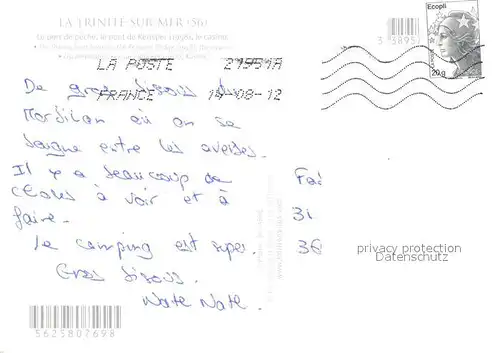 LA TRINITÉ-SUR-MER (56)
Le parc de poche, le pont de Kerisper
3 38951
Ecopli
20 g
LA POSTE 21551A
FRANCE 14-08-12
De gros bisous du
Morbihan où on se
baigne entre les averses.
Il y a beaucoup de
choses à voir et à
faire.
Le camping est super.
Gros bisous.
Nate Nate.
31
38
privacy protection
Datenschutz
5625807698